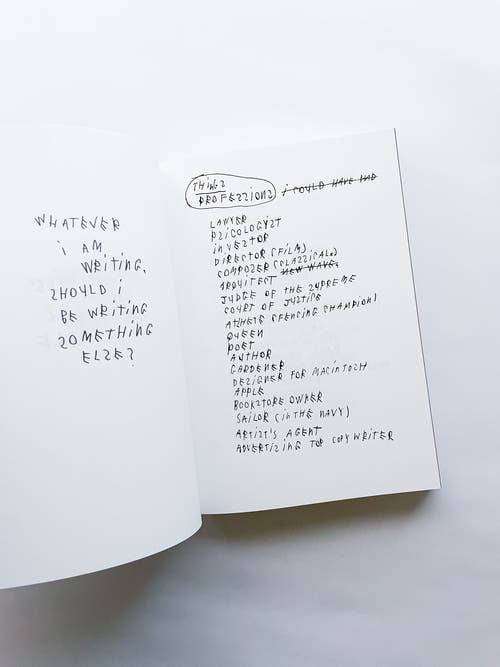 WHATEVER
i AM
WRITING,
SHOULD i
BE WRITING
SOMETHING
ELSE?
THINGS
PROFESSIONS i COULD HAVE HAD
LAWYER
PSICOLOGIST
inVESTOR
DIRECTOR (FILM)
COMPOSER (CLASSICAL)
ARQUITECT NEW WAVE.
JUDGE OF THE SUPREME
COURT OF JUSTICE
ATHLETE (FENCING CHAMPION)
QUEEN
POET
AUTHOR
GARDENER
DESIGNER FOR MACINTOSH
APPLE
BOOKSTORE OWNER
SAILOR (in THE NAVY)
ARTIST'S AGENT
ADVERTISING TOP COPYWRITER